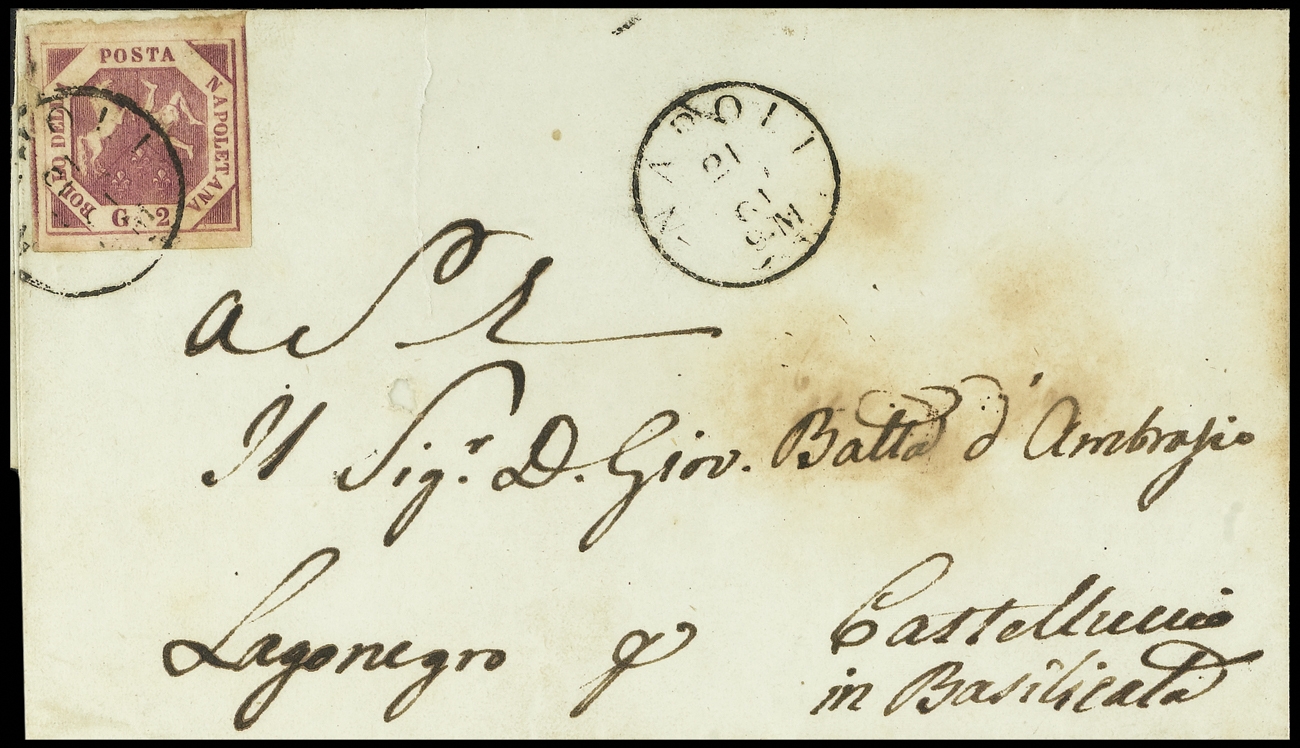 POSTA
NAPOLETANA
BOLLO DELLA
G 2
NAPOLI
21
A S E
Il Sig.r D. Giov. Batta d'Ambrosio
Lagonegro p
Castelluccio
in Basilicata